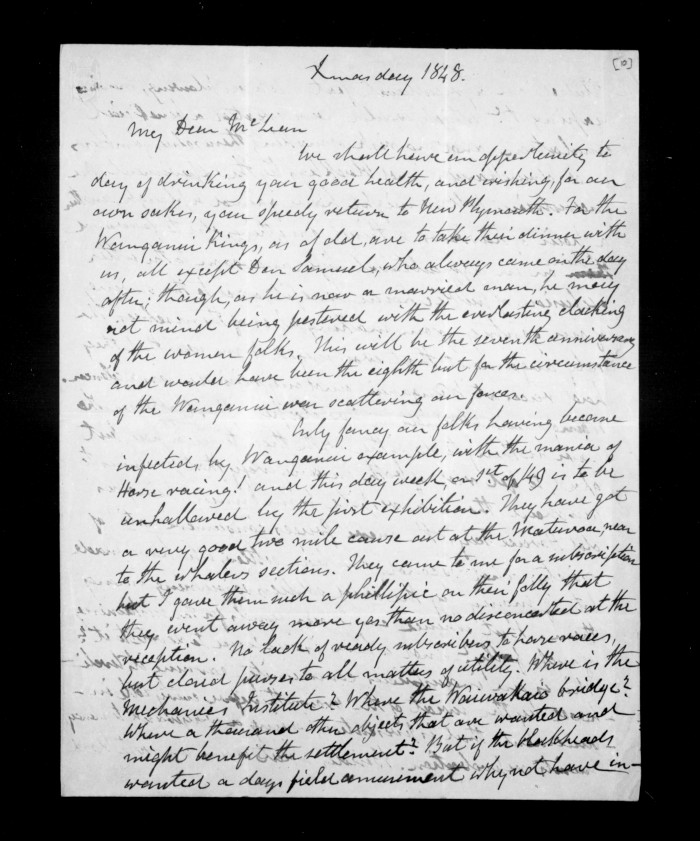 [0]
Xmas day 1848.
My Dear McLean
We shall have an opportunity to
day of drinking your good health, and wishing, for our
own sakes, your speedy return to New Plymouth. For the
Wanganui Kings, as of old, are to take their dinner with
us, all except Dan Samuels, who always came on the day
after; though, as he is now a married man, he may
not mind being pestered with the everlasting clacking
of the women folks. This will be the seventh anniversary
and would have been the eighth but for the circumstance
of the Wanganui war scattering our forces.
Only fancy our folks having become
infected, by Wanganui example, with the mania of
Horse racing! and this day week, on 1st of /49 is to be
unhallowed by the first exhibition. They have got
a very good two mile course out at the near
to the whalers sections. They came to me for a subscription
but I gave them such a phillipic on their folly that
they went away more than discomcerted at the
reception. No lack of ready subscribers to horse races,
but closed purses to all matters of utility. Where is the
Mechanics Institute? Where the Waiwakaio bridge?
Where a thousand other objects that are wanted and
might benefit the settlement? But if the blockheads
wanted a days field amusement why not have in-